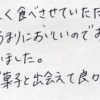 く食べさせていただ
まりにおいしいのでお
いました。
菓子と出会えて良か